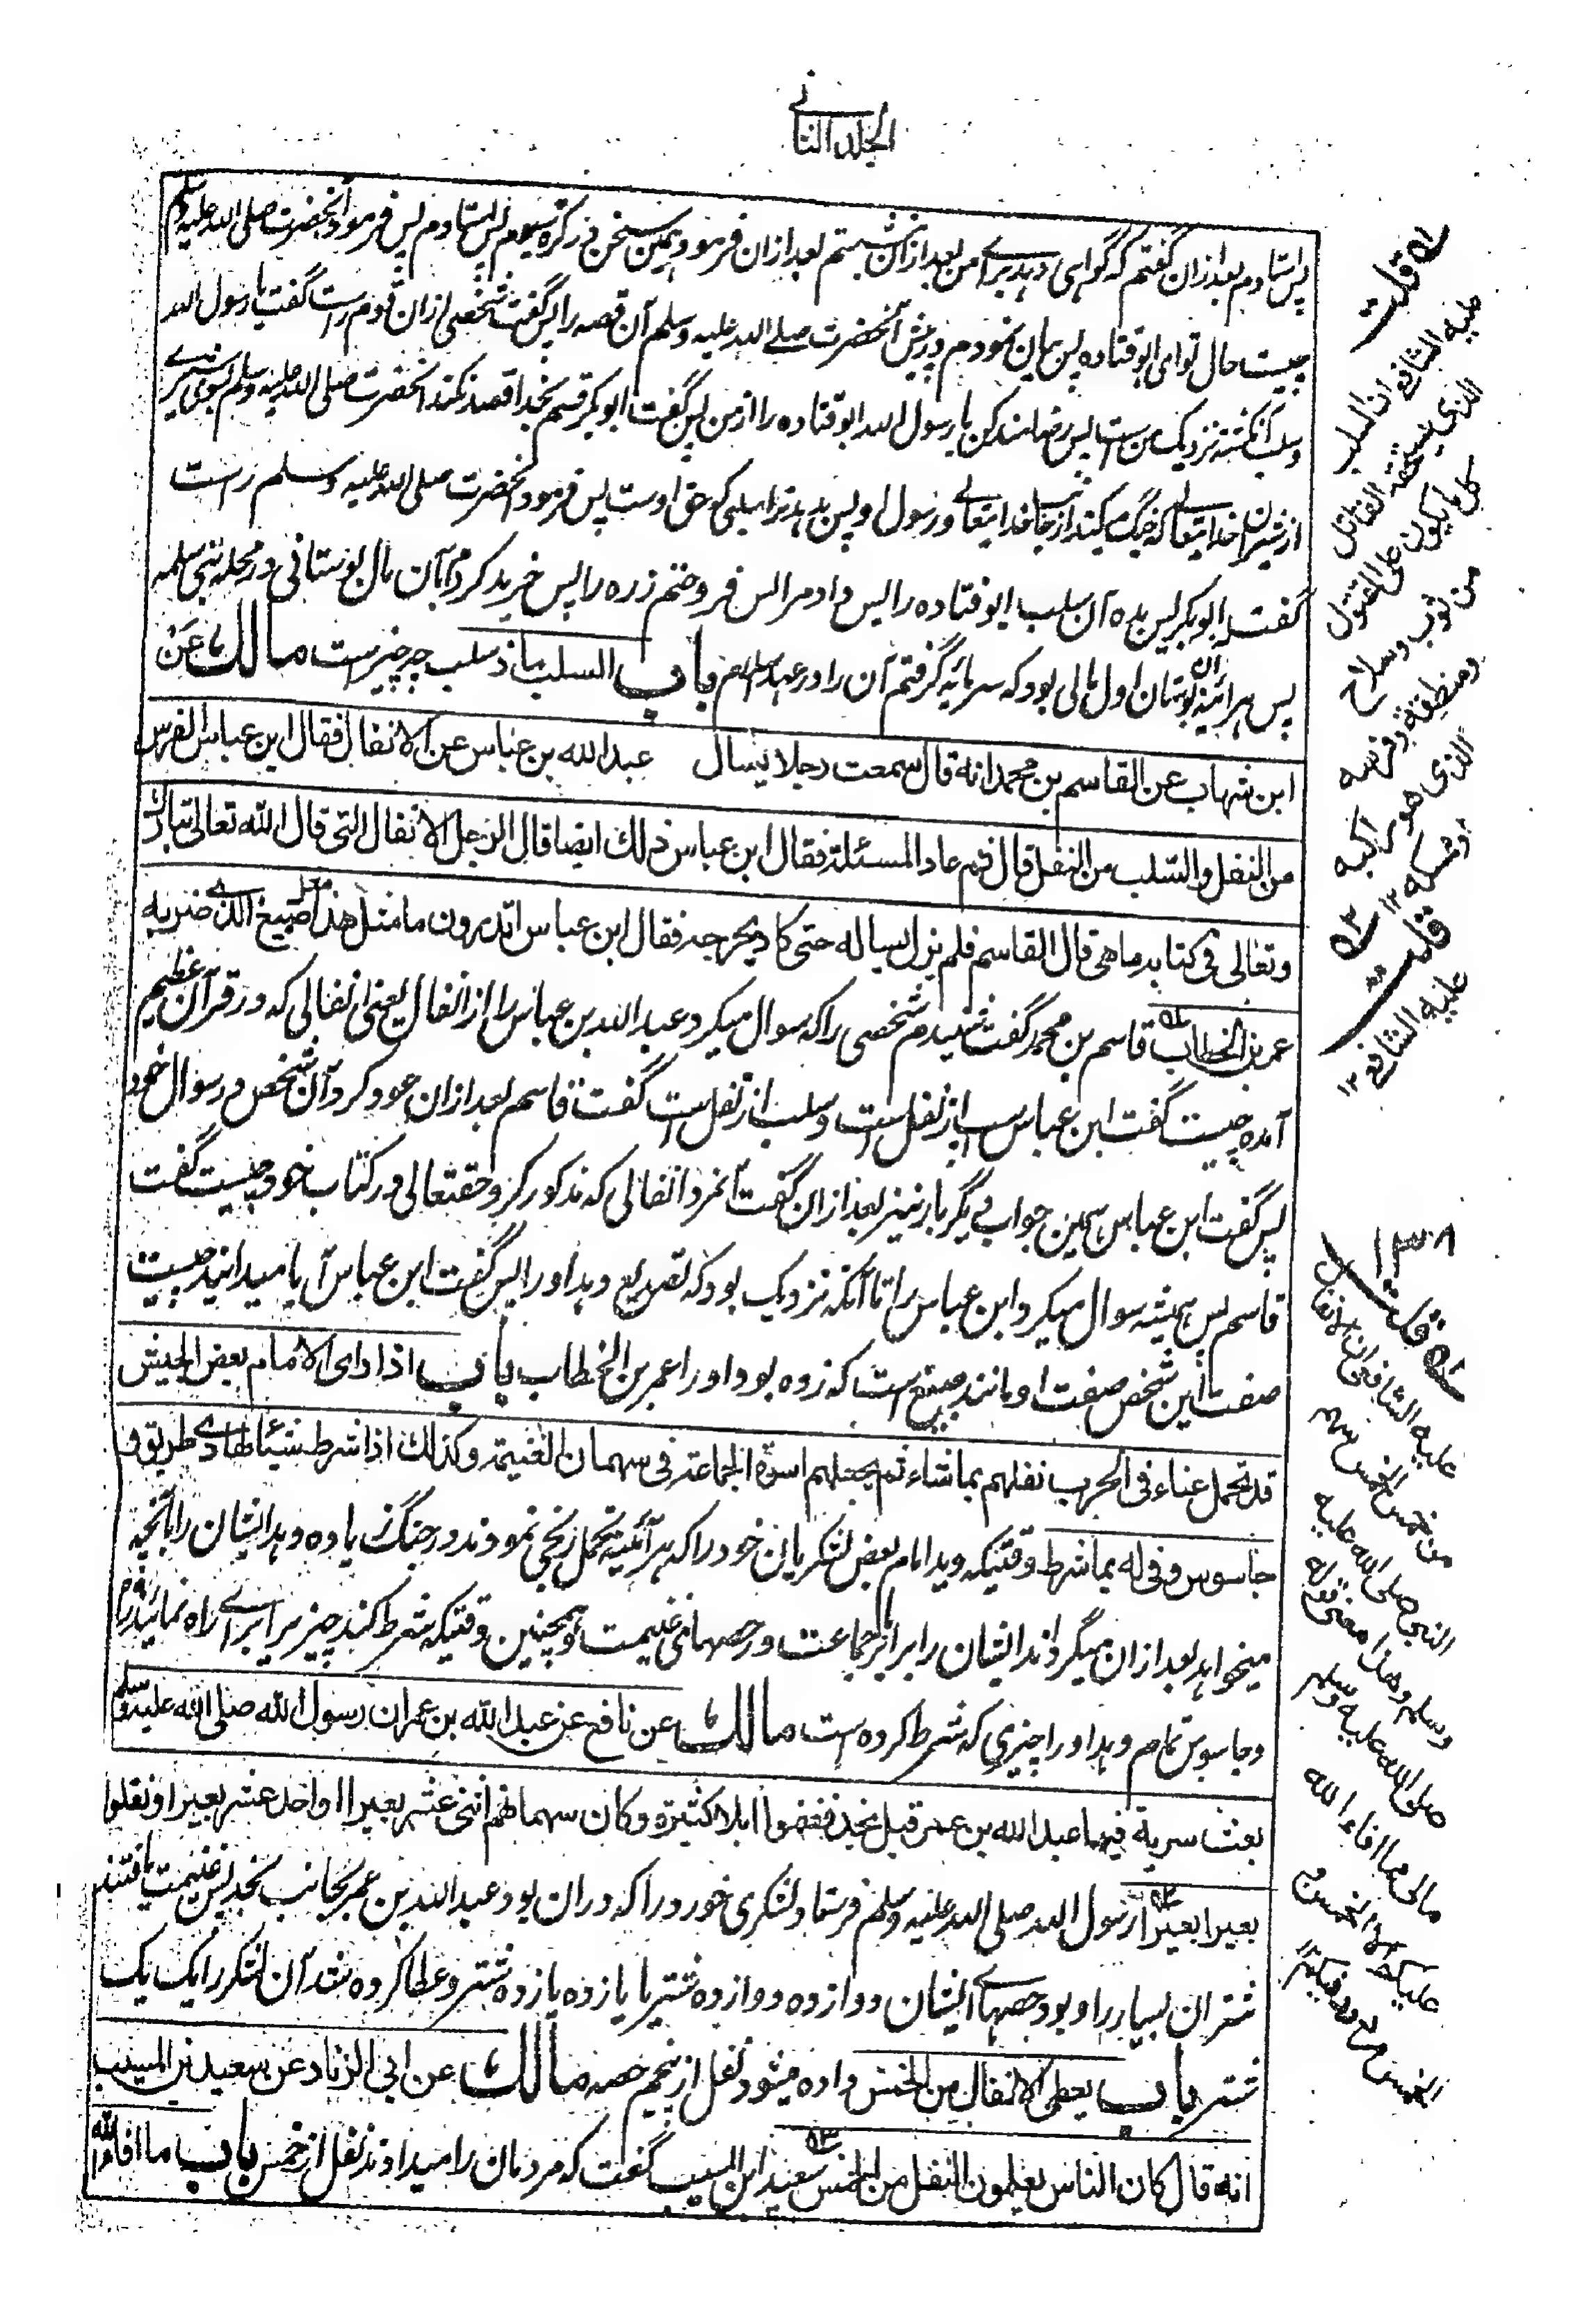 الجلد الثانے
پس استادم بعد ازان گفتم که گواهی دهد برای من بعد ازان نشستم بعد ازان فرمود همین سخن در کرّه سیوم پس استادم پس فرمود آنحضرت صلی الله علیه وسلم
چیست حال تو ای ابو قتاده پس بیان نمودم در پیش آنحضرت صلے الله علیه وسلم آن قصه را پس گفت شخصی ازان قوم راست گفت یا رسول الله
وسلب آن کشته نزدیک من ست پس رضامند کن یا رسول الله ابو قتاده را از من پس گفت ابوبکر قسم بخدا قصد نکند آنحضرت صلی الله علیه وسلم بسوی شیرے
از شیران خدایتعالے که جنگ میکند از جانب خدایتعالے و رسول او پس بدهد ترا سلبی که حق اوست پس فرمود آنحضرت صلی الله علیه وسلم راست
گفت ابوبکر پس بده آن سلب ابو قتاده را پس داد مرا پس فروختم زره را پس خرید کردم بآن مال بوستانی در محله بنی سلمه
پس هر ائینه آن بوستان اول مالی بود که سرمایه گرفتم آن را در عهد اسلام باب السلب ماذ سلب چه چیز ست مالك عن
ابن شهاب عن القاسم بن محمد انه قال سمعت رجلا یسال عبد الله بن عباس عن الانفال فقال ابن عباس الفرس
من النفل والسّلب من النفل قال ثم عاد المسئلة فقال ابن عباس ذلك ایضا قال الرجل الانفال التی قال الله تعالی تبارك
وتعالی فی کتابه ما هی قال القاسم فلم یزل یساله حتی کاد یحرجه فقال ابن عباس اتدرون ما مثل هذا مثل صبیغ الذے ضربه
عمر بن الخطاب قاسم بن محمد گفت شنیدم شخصی را که سوال میکرد عبد الله بن عباس را از انفال یعنی انفالی که در قرآن عظیم
آمده چیست گفت ابن عباس اسپ از نفل ست وسلب از نفل ست گفت قاسم بعد ازان عود کرد آن شخص در سوال خود
پس گفت ابن عباس همین جواب دیگر بار نیز بعد ازان گفت آنمرد انفالی که مذکور کرد حقتعالی در کتاب خود چیست گفت
قاسم پس همیشه سوال میکرد ابن عباس را تا آنکه نزدیک بود که تصدیع دهد او را پس گفت ابن عباس آیا میدانید چیست
صفت این شخص صفت او مانند صبیغ ست که زده بود او را عمر بن الخطاب باب اذا رای الامام بعض الجیش
قد تحمل عناء فی الحرب نفلهم بما شاء ثم یجعلهم اسوة الجماعة فی سهمان الغنیمة وکذلك اذا شرط شیئا لهادی طریق و
جاسوس وفی له بما شرط وقتیکه دید امام بعض لشکریان خود را که هر آئینه تحمل رنجی نمودند در جنگ زیاده دهد ایشان را بآنچه
میخواهد بعد ازان میگرداند ایشان را برابر با جماعت در حصهای غنیمت و همچنین وقتیکه شرط کند چیزے برای راه نماینده
وجاسوس تمام دهد او را چیزی که شرط کرده است مالك عن نافع عن عبد الله بن عمر ان رسول الله صلی الله علیه وسلم
بعث سریة فیها عبد الله بن عمر قبل نجد فغنموا ابلا کثیرة وکان سهمانهم اثنی عشر بعیرا او احد عشر بعیرا ونفلوا
بعیرا بعیرا رسول الله صلی الله علیه وسلم فرستاد لشکری خورد را که دران بود عبد الله بن عمر بجانب نجد پس غنیمت یافتند
شتران بسیار را و بود حصهاے ایشان دوازده دوازده شتر یا یازده یازده شتر و عطا کرده شد آن لشکر را یک یک
شتر باب یعطی الانفال من الخمس داده میشود نفل از پنجم حصه مالك عن ابی الزناد عن سعید بن المسیب
انه قال کان الناس یعطون النفل من الخمس سعید ابن المسیب گفت که مردمان را میدادند نفل از خمس باب ما افاء الله
قلت
علیه الشافعے ان السلب
الذی یستحقه القاتل
کل ما یکون علی المقتول
من ثوب وسلاح
ومنطقة وفرسه
الذی هو راکبه
او ممسکه ۱۲
قلت
علیه الشافعے ۱۲
۱۳۰۸
قلت
علیه الشافعی ان الانفال
من خمس الخمس سهم
النبی صلی الله علیه
وسلم وهذا معنی قوله
صلی الله علیه وسلم
مالی مما افاء الله
علیکم الا الخمس و
الخمس مردود فیکم